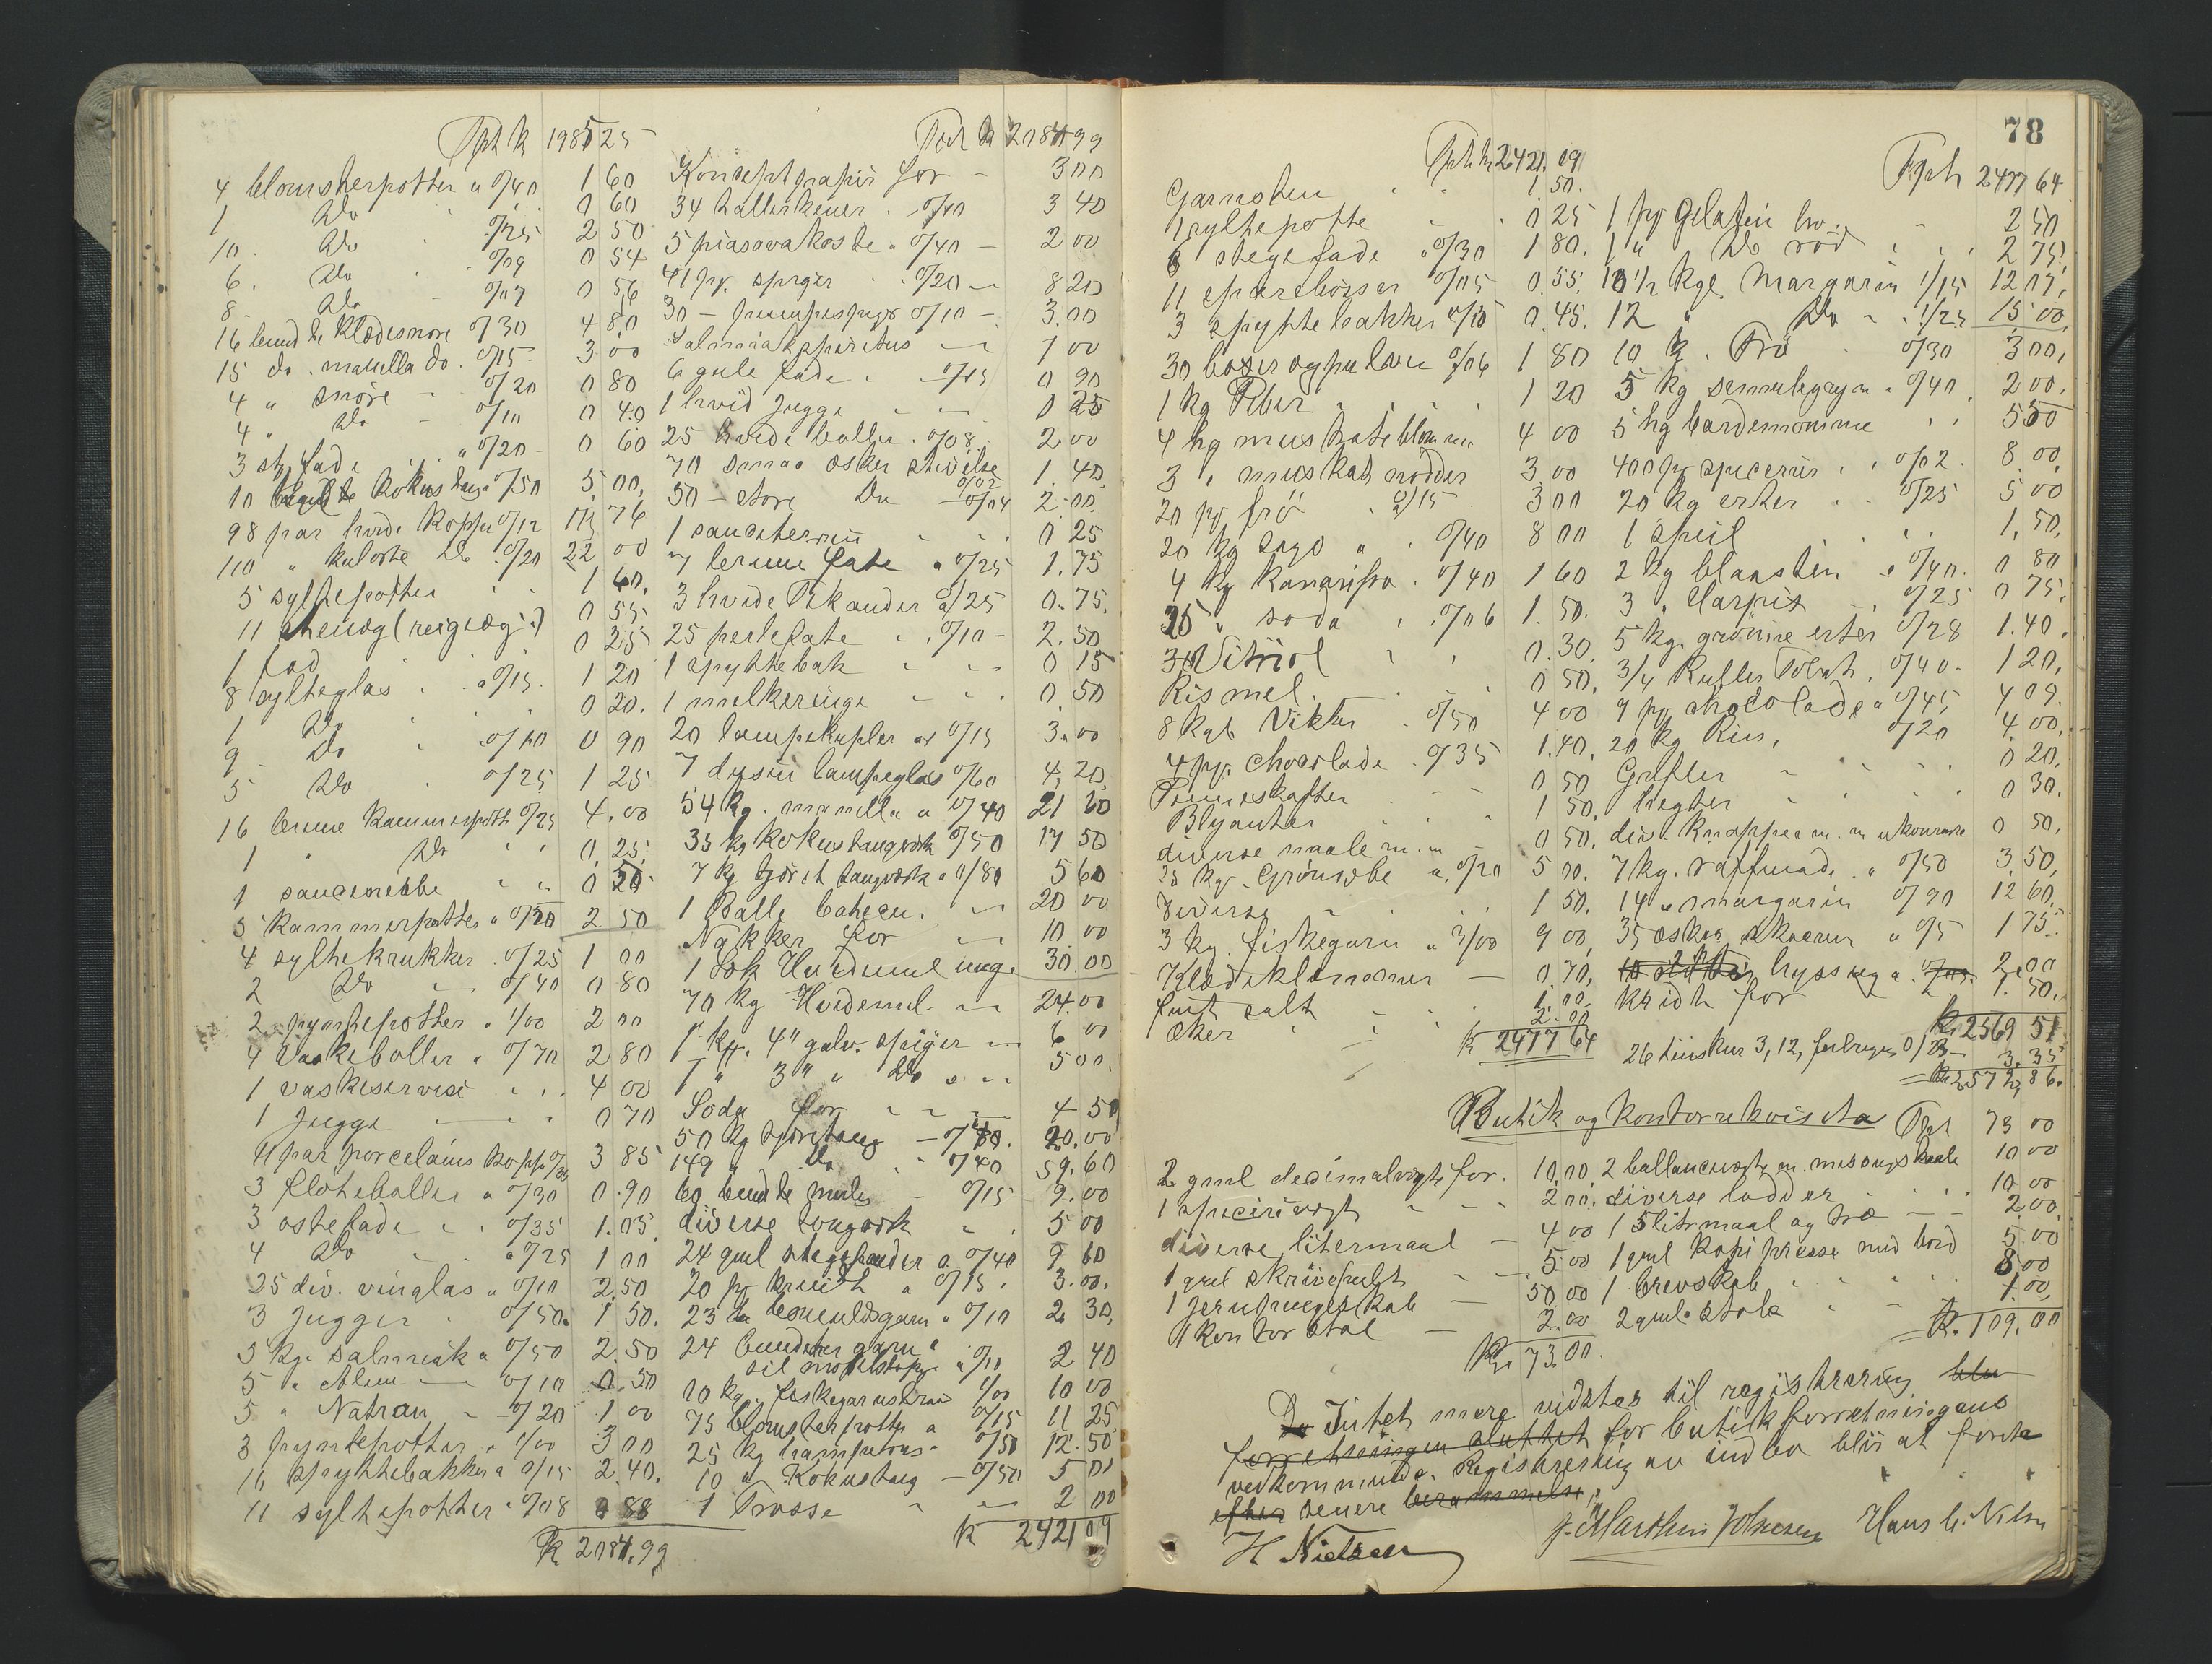 Tph k 1985 25
4 blomsterpotter a 0/40 1 60
1 Do 0 60
10. Do 0/25 2 50
6. Do 0/09 0 54
8 Do 0/07 0 56
16 bundte Klædesnore 0/30 4 80
15 do. manilla do. 0/15 3 00
4 " snöre 0/20 0 80
4 " Do 0/10 0 40
3 st. fade " 0/20 0 60
10 bundte kokustaug 0/50 5,00,
98 par hvide kopper 0/12 11 76
110 " kulørte Do 0/20 22 00
5 syltepotter 1 60,
11 stenæg (reiræg) 0 55
1 fad 0 25
8 sylteglas " a 0/15. 1 20
1 Do 0 20.
9 Do 0/10 0 90
5 Do 0/25 1 25
16 brune Kammerpotter 0/25 4.00
1 " Do 0,25,
1 saucenebbe 0 50
5 Kammerpotter " 0/50 2 50
4 syltekrukker 0/25 1 00
2 Do 0/40 0 80
2 pyntepotter " 1/00 2 00
4 Vaskeboller " 0/70 2 80
1 vaskeservise 4 00
1 Jugge 0 70
11 par porcelains kopper 0/35 3 85
3 flöteboller a 0/30 0.90
3 ostefade " 0/35 1.05
4 Do a 0/25 1 00
25 div. vinglas " 0/10 2.50
3 Jugger 0/50. 1 50.
5 kg. salmiak a 0/50 2.50
5 " Alun 0/10 0.50
5 " Natron 0/20 1 00
3 pyntepotter " 1/00 3 00
16 spyttebakker a 0/15 2.40.
11 syltepotter " 0/08 0 88
K 2084.99
Tph k 2084 99
Konceptpapir for 3 00
34 tallerkener 0/10 3 40
5 piasavakoste " 0/40 2 00
41 pk. spiger 0/20 8 20
30 0/10 3.00
Salmiakspiritus 1 00
6 gule fade 0/15 0 90
1 hvid Jugge 0 25
25 hvide boller. 0/08. 2 00
70 smaa æsker stivelse 0/02 1.40,
50 - store Do 0/04 2.00.
1 saucterrin 0 25
7 lerume fate " 0/25 1.75
3 hvide Pikander a/25 0.75,
25 perlefate 0/10 2.50
1 spyttebak 0 15
1 melkeringe 0,50
20 lampekupler a 0/15 3.00
7 dysin lampeglas 0/60 4,20
54 kg. manilla a 0/40 21 60
35 kg kokustaugværk 0/50 17 50
7 kg tjæret taugværk a 0/80 5 60
1 Balle 20 00
Nakker for 10 00
1 Sæk Hvedemel 30.00
70 kg Hvedemel 24.00
1 kg. 4" galv. spiger 6 00
1 " 3" " Do 5 00.
Soda for 4 50
50 kg tjæretaug 20.00
149 " Do 0/40 59.60
60 bundte 0/15 9.00
diverse tougværk 5 00
24 gml stegepander a. 0/40 9 60
20 pk a 0/15. 3.00.
23 bomuldsgarn " 0/10 2.30,
24 bundter garn
a 0/10 2 40
10 kg. fiskegarnstraa 1/00 10 00
75 blomsterpotter a 0/15 11 25
25 kg 0/50 12.50
10 " Kokustaug 0/50 5 00
1 Trosse 2 00
K 2421 09
78
Tph k 2421.09
Garnsten 1 50.
1 syltepotte 0 25
6 stegefade " 0/30 1 80.
11 sparebösser 0/05 0.55,
3 spyttebakker a/15 0.45.
30 0/06 1 80
1 kg Peber 1 20
4 hg muskateblomme 4 00
3 " muskatnødder 3,00
20 pk frö a/15 3 00
20 kg sago " 0/40 8 00
4 kg Kanarifrö 0/40 1 60
25 " soda 0/06 1.50.
Vitriol 0.30.
Rismel. 0 50,
8 Vikker 0/50 4 00
4 pk. chocolade 0/35 1.40.
Penneskafter 0 50
Blyanter 1 50,
diverse naale m. m 0 50.
25 kg. Grønsæbe a, 0/20 5 00.
Diverse 1 50.
3 kg. fiskegarn " 3/00 9 00,
Klædeklemmer 0.70,
fint salt 1.00,
öser 2.00
K 2477 64
Tph 2477 64
1 pk gelatin hv. 2 50
1 " Do röd 2 75.
10 1/2 kg. Margarin 1/15 12 07,
12 " Do 1/25 15 00,
10 k. Frö 0/30 3 00,
5 kg semulegryn a 0/40. 2 00.
5 hg kardemomme 5 50
400 pk specerier 0/02. 8.00,
20 kg erter 0/25 5 00
1 speil 1,50,
2 kg blaasten a 0/40. 0 80
3 " Harpix 0/25 0 75.
5 kg. grønne erter 0/28 1.40.
3/4 Rutler Tobak. 0/40 1 20,
9 pk chocolade a 0/45, 4 09.
20 kg Ris, 0/20 4.00,
Grifler 0 20.
hegter 0 30.
div. knapper m. m ukurante 0 50,
7 kg. raffinade. " 0/50 3,50,
14 " margarin 0/90 12 60,
35 æsker skosverte " 0/5 1 75.
hyssing a. 2.00
kridt for 1.50.
k. 2569 51
26 3,12, 3.35
= k. 2572,86.
Butik og kontorrekvisita Tph 73 00
2 gml decimalvægte for. 10,00,
1 specerivægt 2 00.
diverse litermaal 4 00
1 gml skrivepult 5.00
1 jernpengeskab 50 00
1 kontorstol 2.00
Kr. 73.00.
2 ballancevægte m. messingskaale 10 00
diverse lodder 10.00
1 5 litrmaal og træ 2,00,
1 gml kopipresse med bord 5.00
1 brevskab 8 00
2 gml. stole 1.00,
= K. 109.00
Intet mere vidstes til registrering
forretningen sluttet for butikforretningens
vedkommende. Registrering av indbo blir at foreta
efter senere berammelse.
H Nielsen J. Marthin Johnsen Hans C. Nilsen